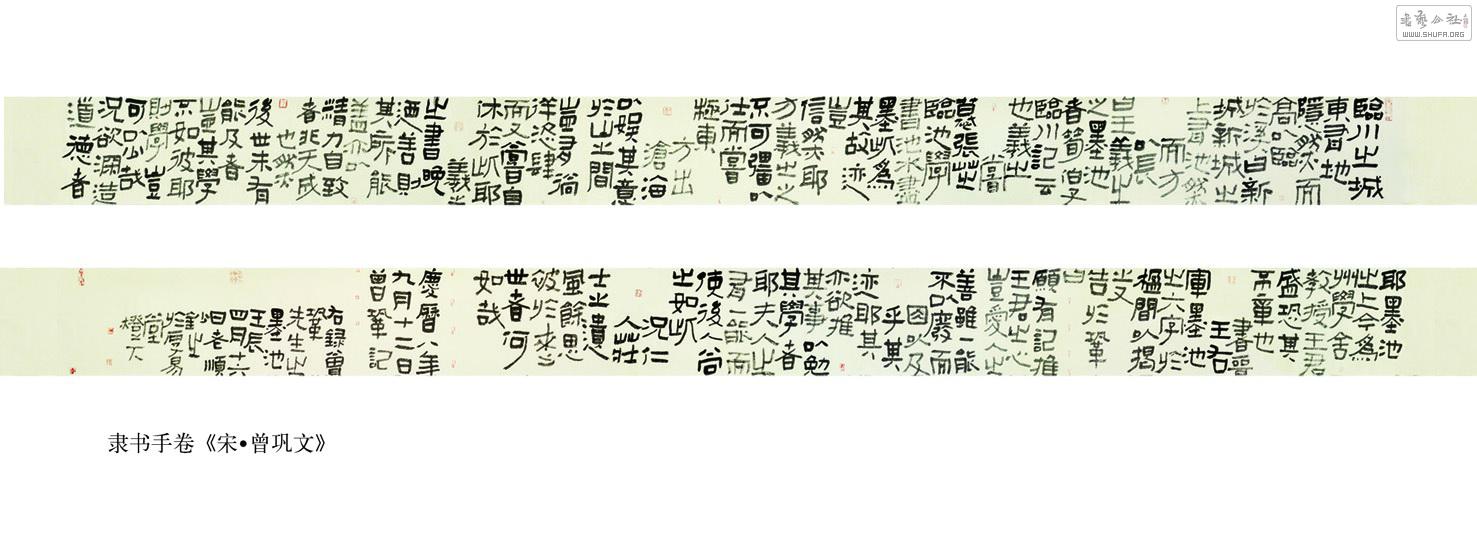 臨川之城
東有地
隱然而
高以臨
於溪曰新
城新城之
上有池然
而方
以長
曰王羲之
之墨池
者荀伯子
臨川記云
也羲之
嘗
慕張芝
臨池學
書池水盡
墨此為
其故迹
豈
信然耶
方羲之之
不可彊以
仕而嘗
極東
方出
滄海
以娛其意
於山水間
豈有徜
徉恣肆
而又嘗自
休於此耶
羲之
之書晚
迺善則
其所能
蓋亦以
精力自致
者非天成
也然
後世未有
能及者
豈其學
不如彼耶
則學豈
可以少哉
況欲深造
道德者
耶墨池
之上今為
州學舍
教授王君
盛恐其
不章也
書晉
王君
軍墨池
之六字於
楹間以揭
之又
告於鞏
曰
願有記推
王君之心
豈愛人之
善雖一能
不以廢而
因以及
乎其
迹耶其
亦欲推
其事以勉
其學者
耶夫人之
有一能而
使後人尚
之如此
況仁
人莊
士之遺
風餘思
被於來世
世者何
如哉
慶曆八年
九月十二日
曾鞏記
右錄曾
鞏
先生之
墨池
四月十六
日老順
堂
燈下
隶书手卷《宋•曾巩文》
书艺公社
WWW.SHUFA.ORG